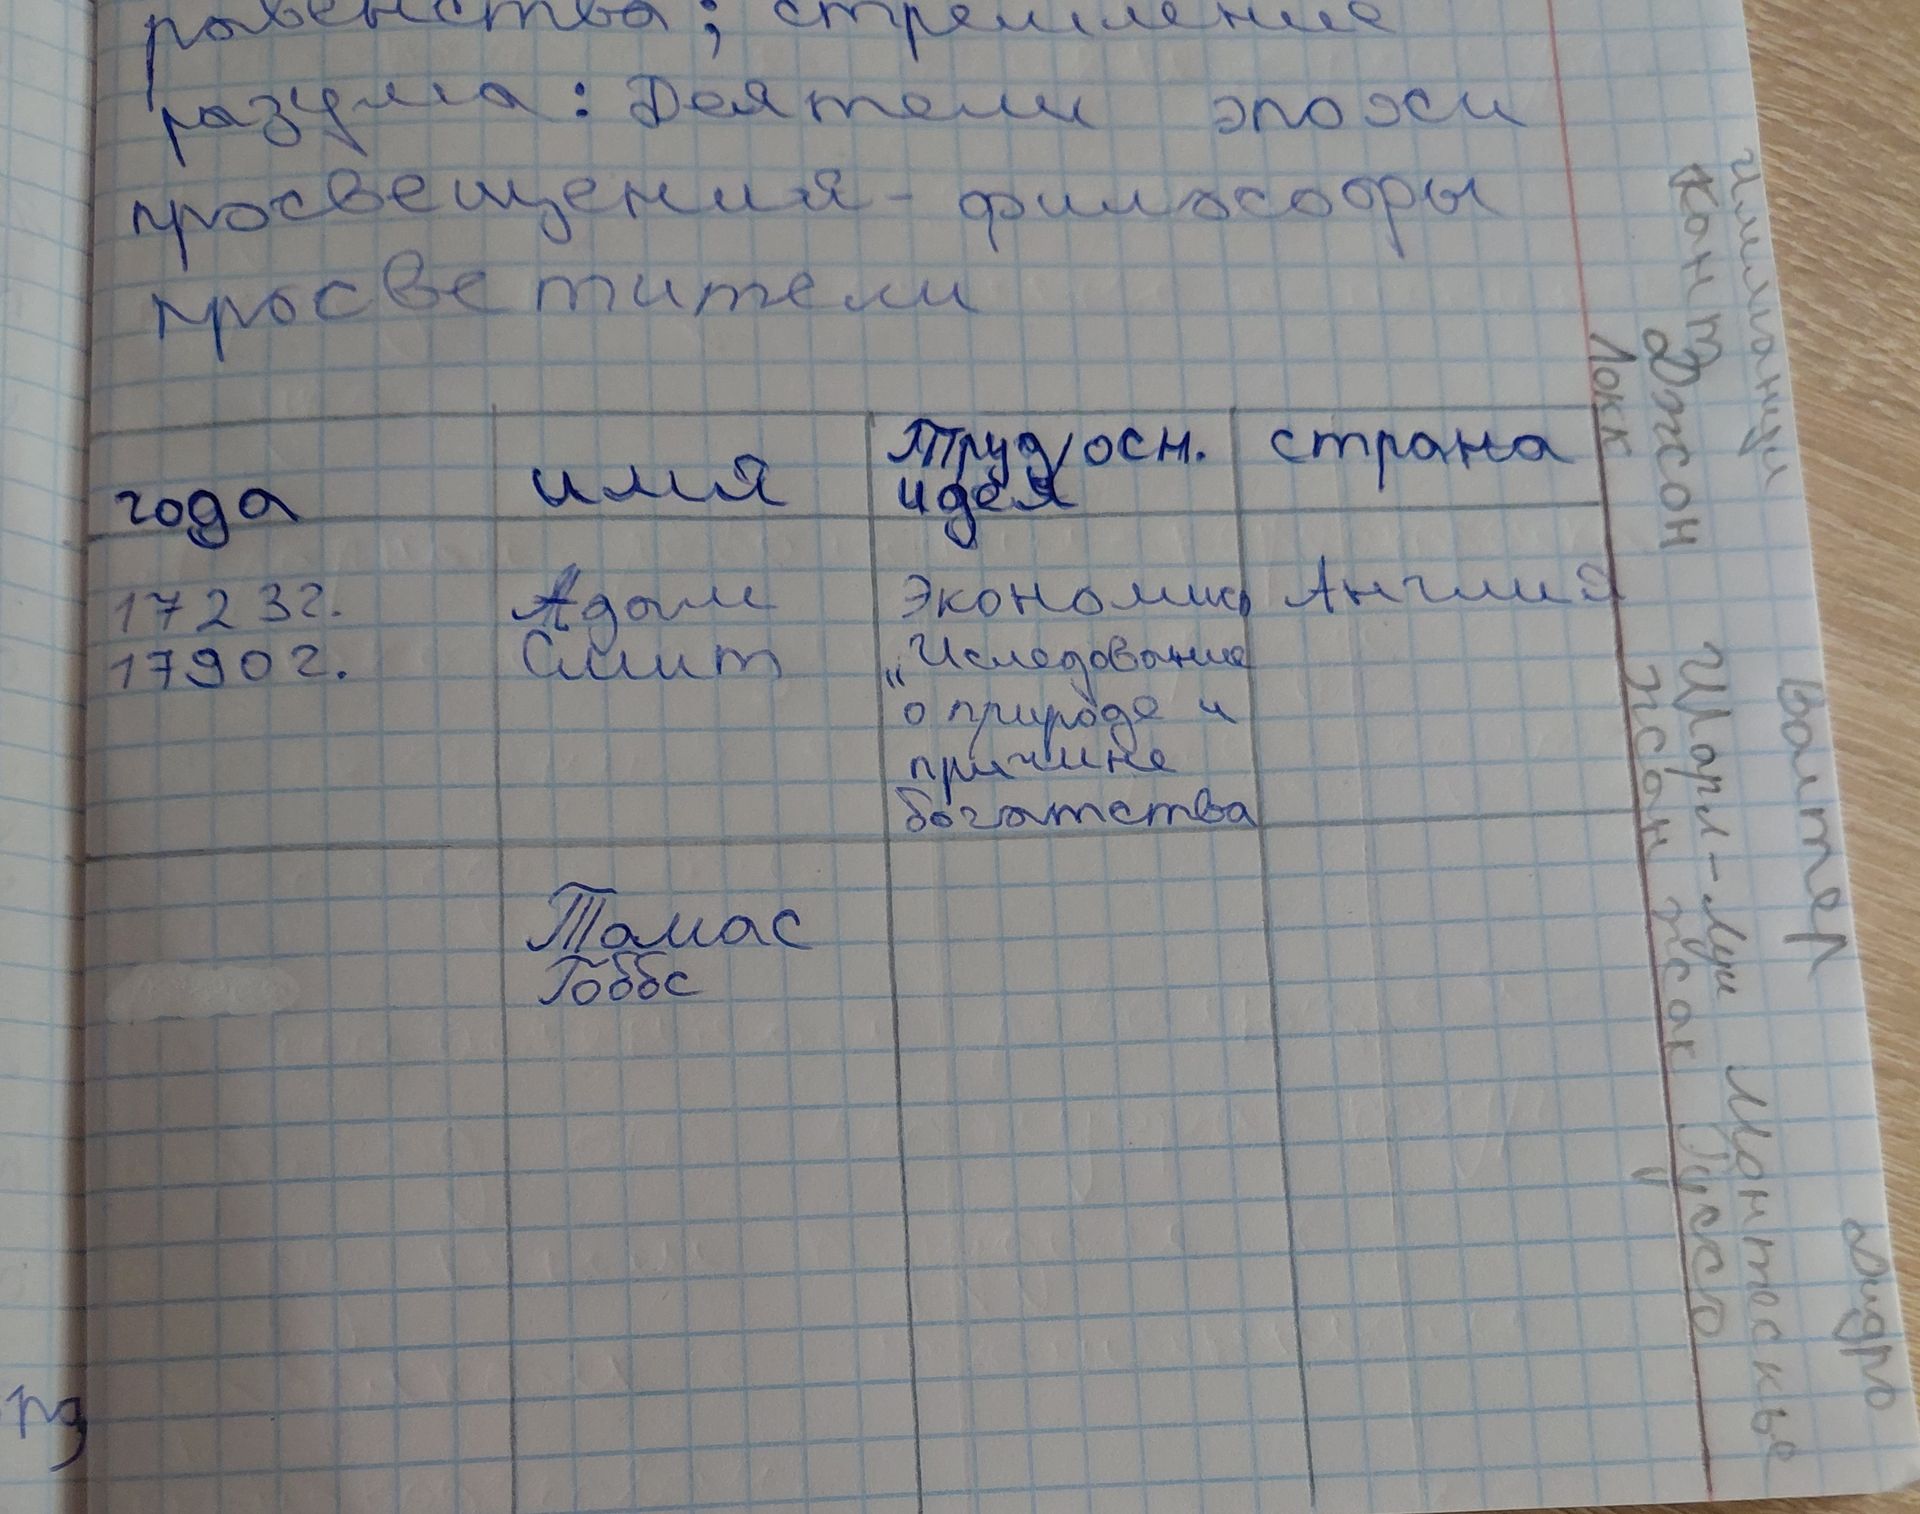 равенства; стремление
разума: Деятели эпохи
просвещения - философы
просветители
года имя Труд/осн. идея страна
1723г. Адам Экономика Англия
1790г. Смит „Иследование
о природе и
причине
богатства
Томас
Гоббс
Иммануил
Кант
Джон
Локк
Вольтер
Шарл-Луи Монтескье
Жан Жак Руссо
Дидро